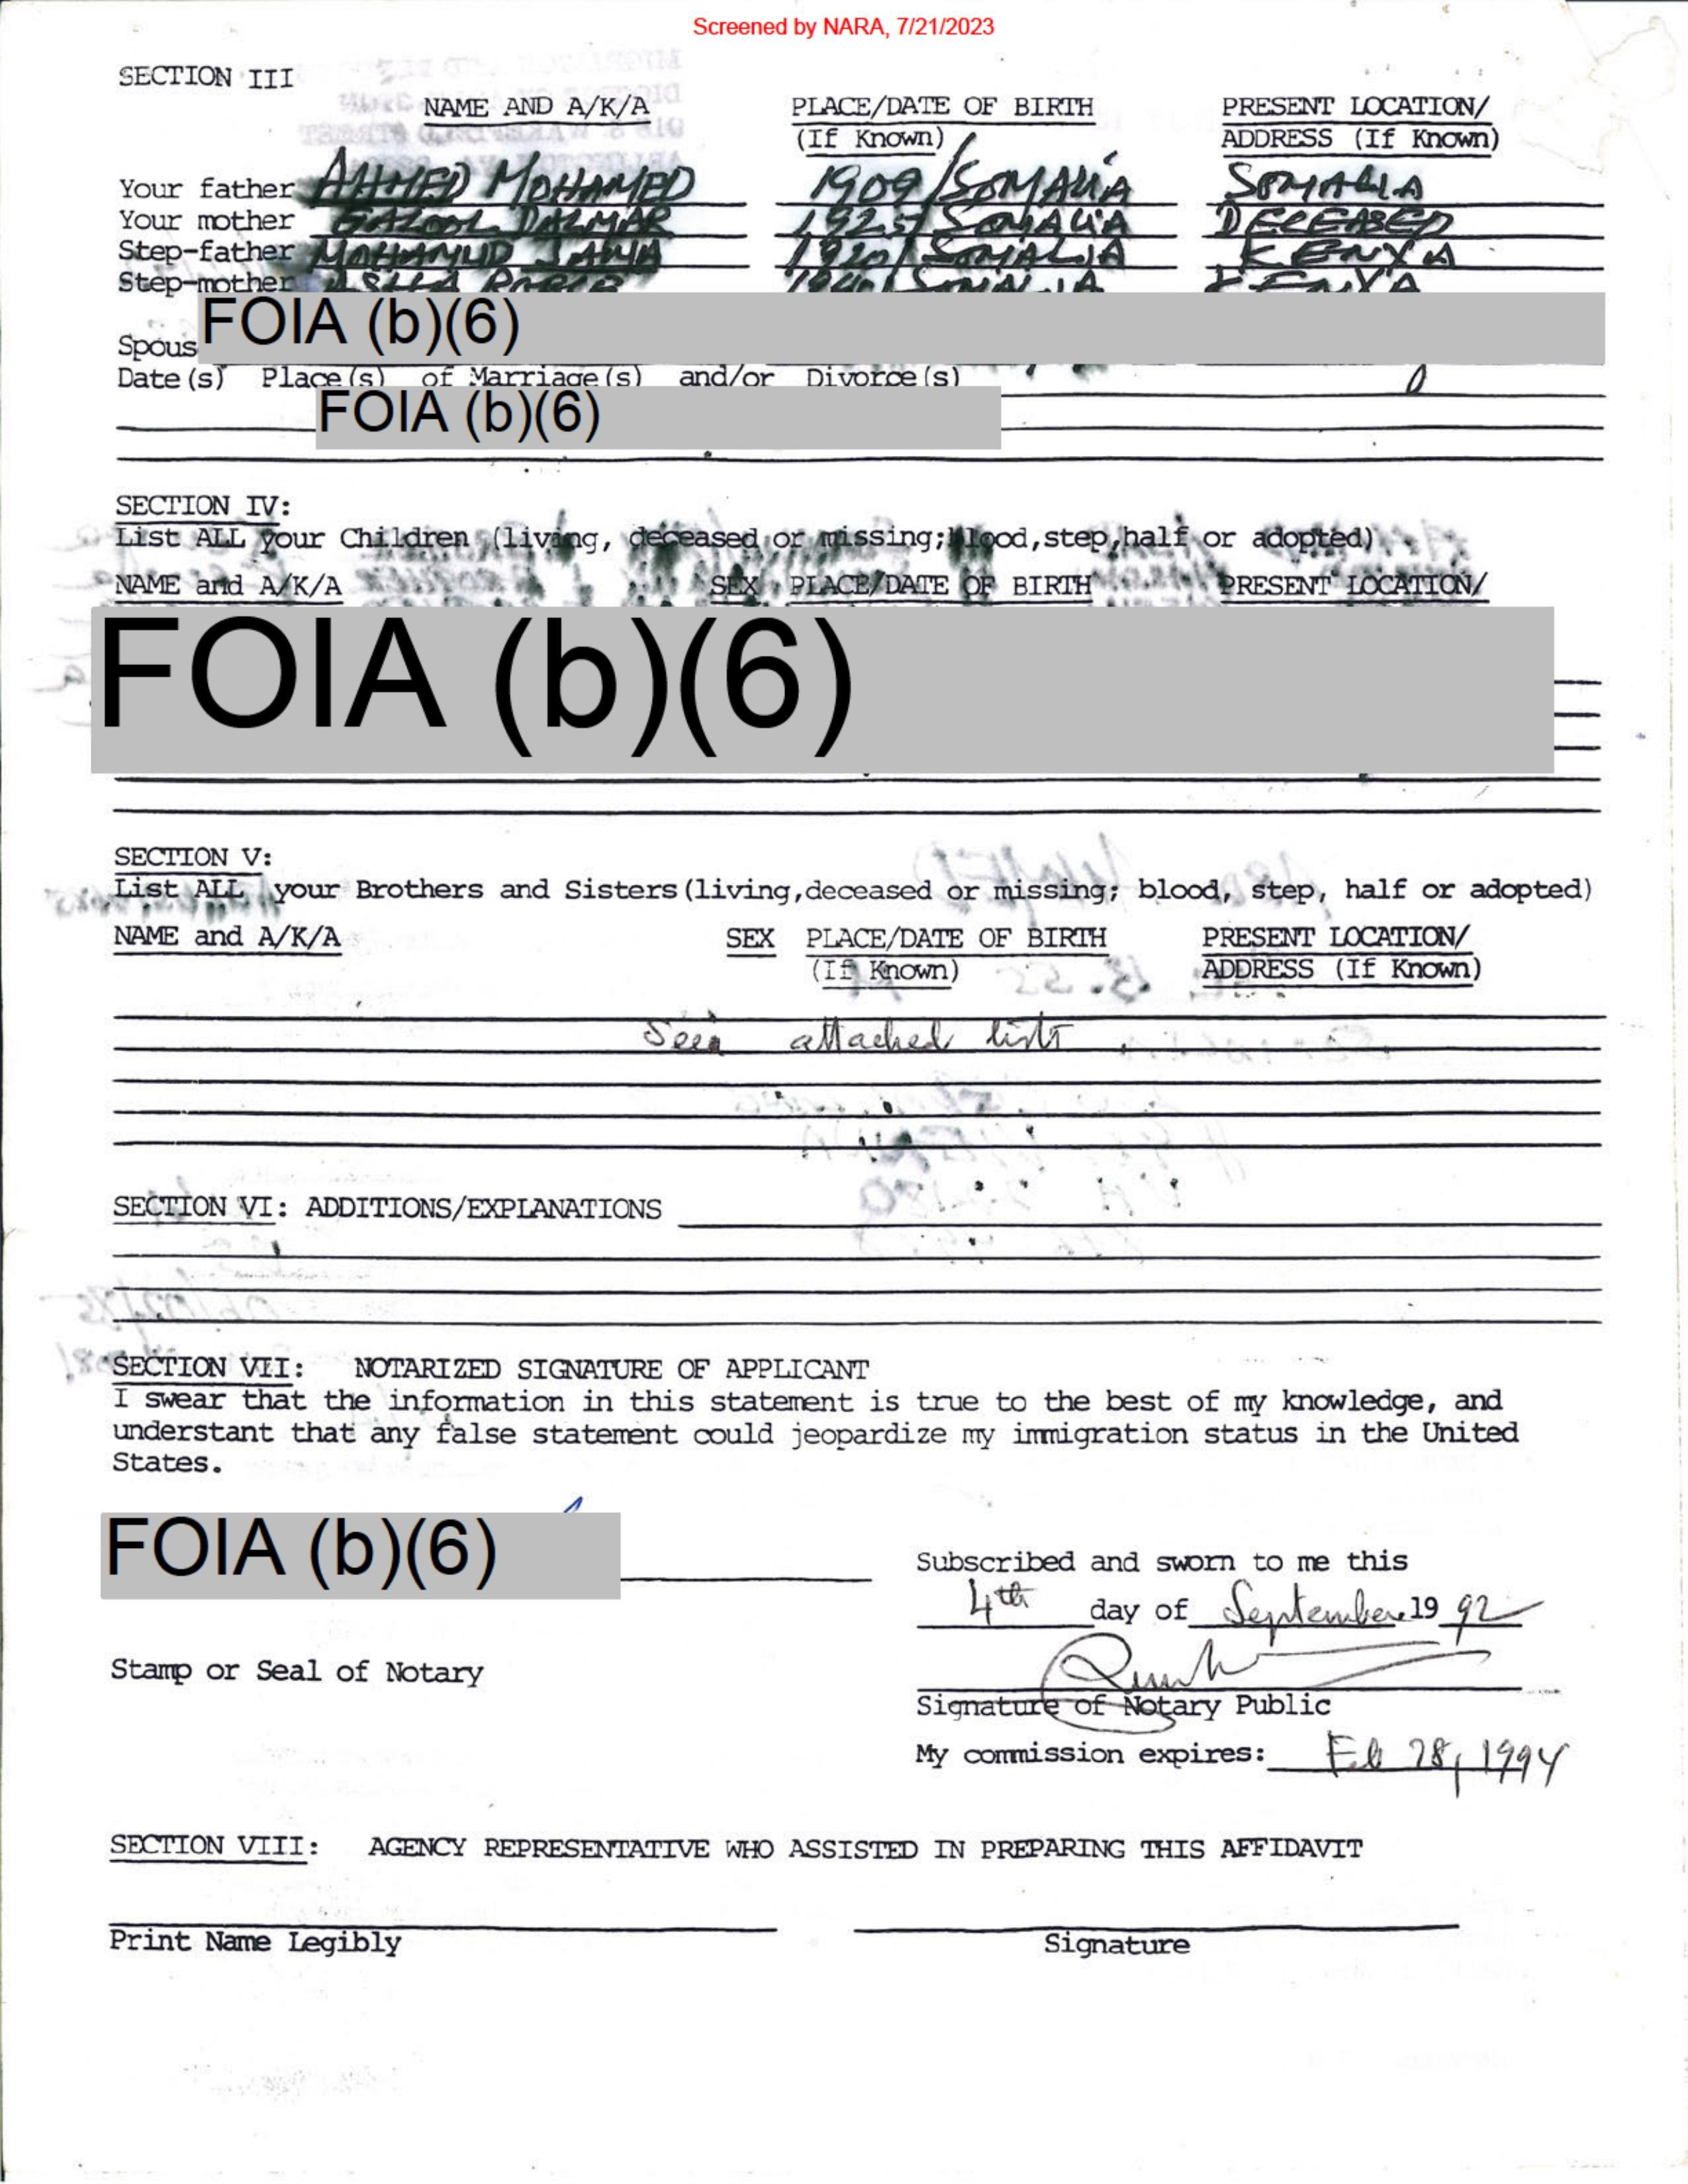 Screened by NARA, 7/21/2023
SECTION III
NAME AND A/K/A PLACE/DATE OF BIRTH PRESENT LOCATION/
(If Known) ADDRESS (If Known)
Your father AHMED MOHAMED 1909/SOMALIA SOMALIA
Your mother DALMAR 1925/SOMALIA DECEASED
Step-father MOHAMUD JAMA 1920/SOMALIA KENYA
Step-mother KENYA
FOIA (b)(6)
Spous
Date(s) Place(s) of Marriage(s) and/or Divorce(s)
FOIA (b)(6)
SECTION IV:
List ALL your Children (living, deceased or missing; blood,step,half or adopted)
NAME and A/K/A SEX PLACE/DATE OF BIRTH PRESENT LOCATION/
FOIA (b)(6)
SECTION V:
List ALL your Brothers and Sisters(living,deceased or missing; blood, step, half or adopted)
NAME and A/K/A SEX PLACE/DATE OF BIRTH PRESENT LOCATION/
(If Known) ADDRESS (If Known)
attached
SECTION VI: ADDITIONS/EXPLANATIONS
SECTION VII: NOTARIZED SIGNATURE OF APPLICANT
I swear that the information in this statement is true to the best of my knowledge, and
understant that any false statement could jeopardize my immigration status in the United
States.
FOIA (b)(6)
Subscribed and sworn to me this
4th day of September 19 92
Stamp or Seal of Notary
Signature of Notary Public
My commission expires: Feb 28, 1994
SECTION VIII: AGENCY REPRESENTATIVE WHO ASSISTED IN PREPARING THIS AFFIDAVIT
Print Name Legibly Signature